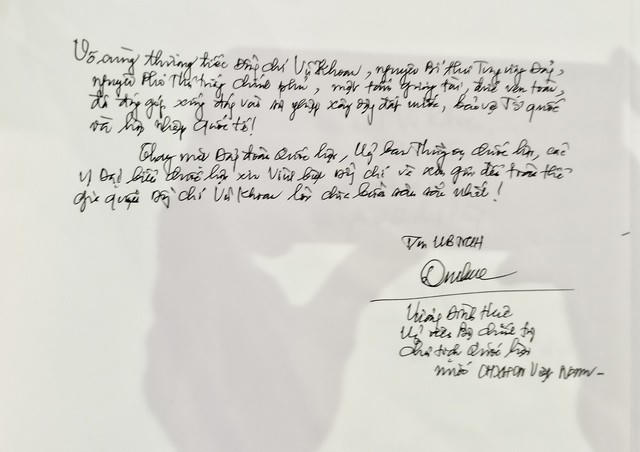 Vô cùng thương tiếc đồng chí Vũ Khoan, nguyên Bí thư Trung ương Đảng,
nguyên Phó Thủ tướng Chính phủ, một tấm gương tài, đức vẹn toàn,
đã đóng góp xứng đáng vào sự nghiệp xây dựng đất nước, bảo vệ Tổ quốc
và hội nhập quốc tế!
Thay mặt Quốc hội, Uỷ ban Thường vụ Quốc hội, các
vị Đại biểu Quốc hội xin vĩnh biệt đồng chí và xin gửi đến toàn thể
gia quyến đồng chí Vũ Khoan lời chia buồn sâu sắc nhất!
TM UBTVQH
Vương Đình Huệ
Uỷ viên Bộ Chính trị
Chủ tịch Quốc hội
nước CHXHCN Việt Nam